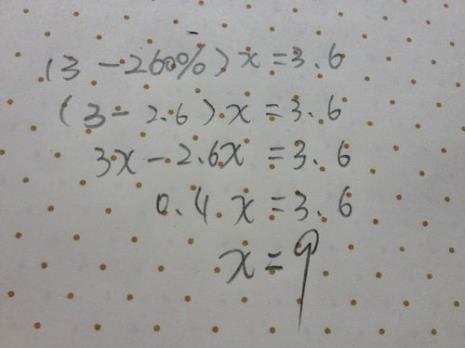 (3-260%)x=3.6
(3-2.6)x=3.6
3x-2.6x=3.6
0.4x=3.6
x=9